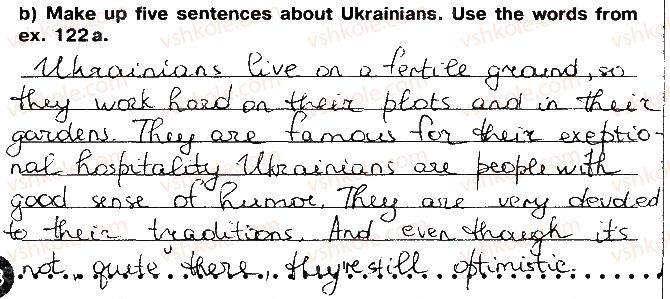 b) Make up five sentences about Ukrainians. Use the words from
ex. 122a.
Ukrainians live on a fertile ground, so
they work hard on their plots and in their
gardens. They are famous for their exeptio-
nal hospitality Ukrainians are people with
good sense of humor. They are very devoded
to their traditions. And even though its
not quite there, they're still optimistic.